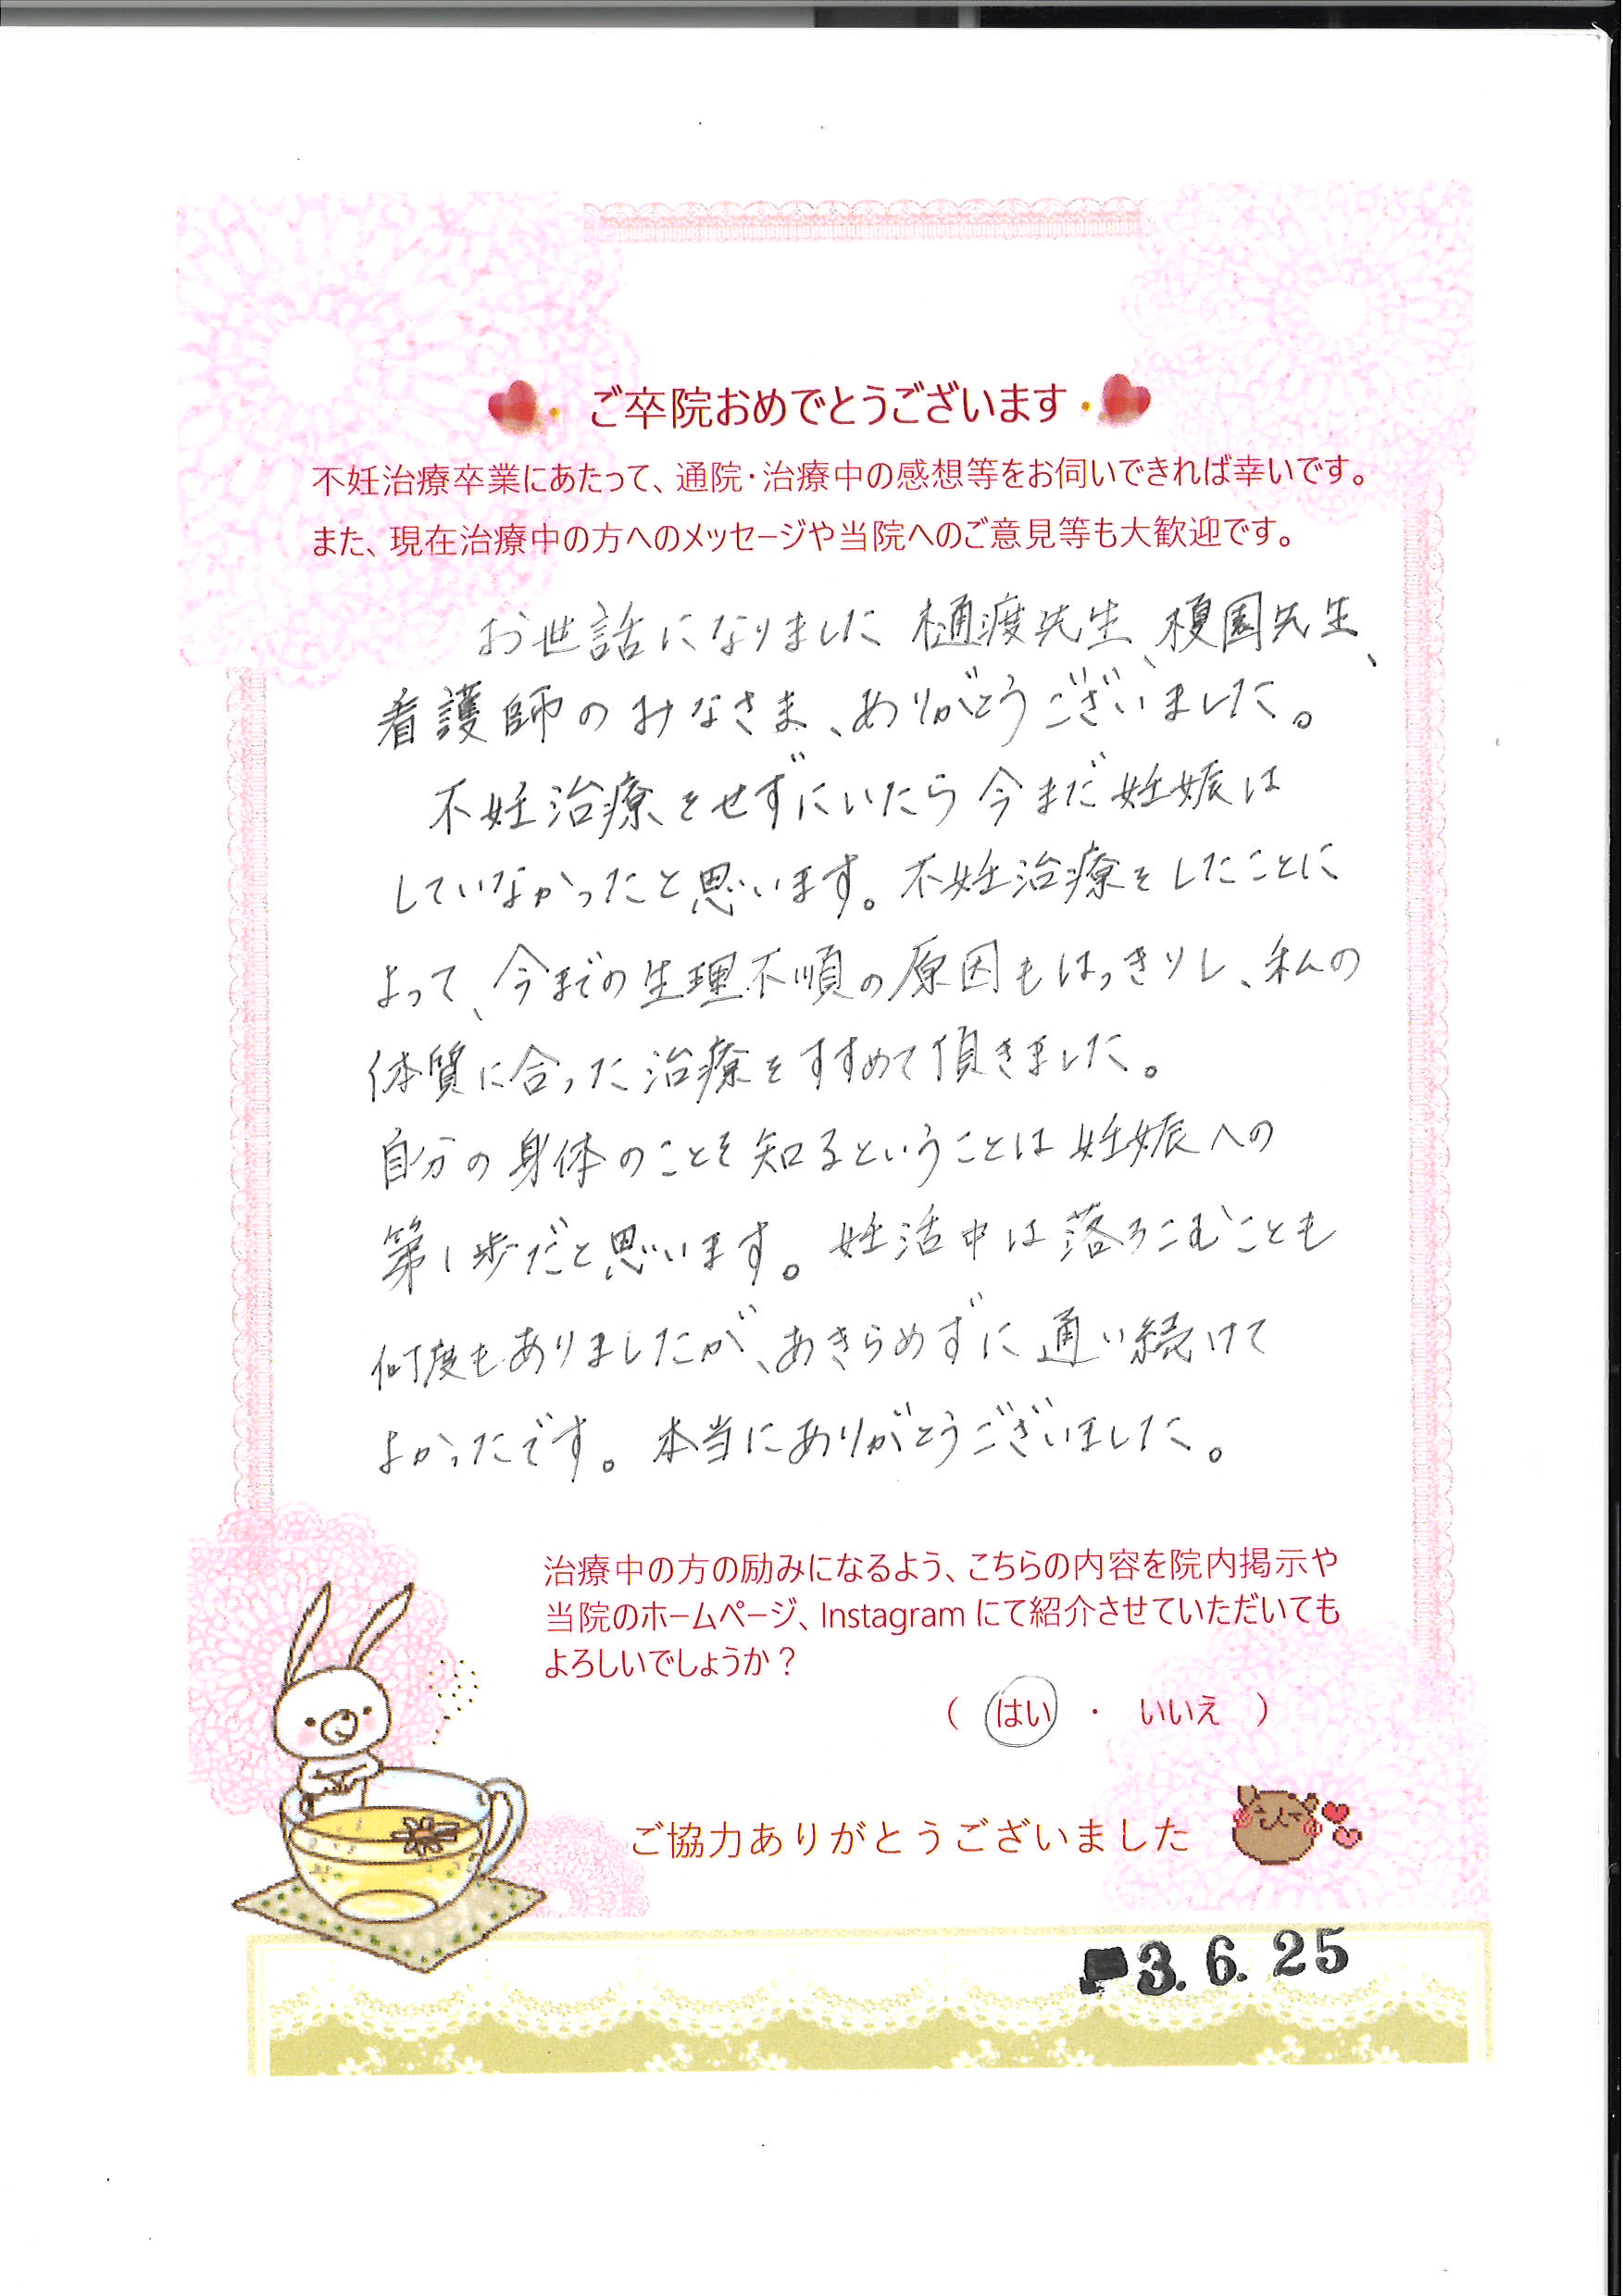 ご卒院おめでとうございます
不妊治療卒業にあたって、通院・治療中の感想等をお伺いできれば幸いです。
また、現在治療中の方へのメッセージや当院へのご意見等も大歓迎です。
お世話になりました樋渡先生、榎園先生、
看護師のみなさま、ありがとうございました。
不妊治療をせずにいたら今まだ妊娠は
していなかったと思います。不妊治療をしたことに
よって、今までの生理不順の原因もはっきりし、私の
体質に合った治療をすすめて頂きました。
自分の身体のことを知るということは妊娠への
第1歩だと思います。妊活中は落ちこむことも
何度もありましたが、あきらめずに通い続けて
よかったです。本当にありがとうございました。
治療中の方の励みになるよう、こちらの内容を院内掲示や
当院のホームページ、Instagramにて紹介させていただいても
よろしいでしょうか？
（ はい ・ いいえ ）
ご協力ありがとうございました
3. 6. 25